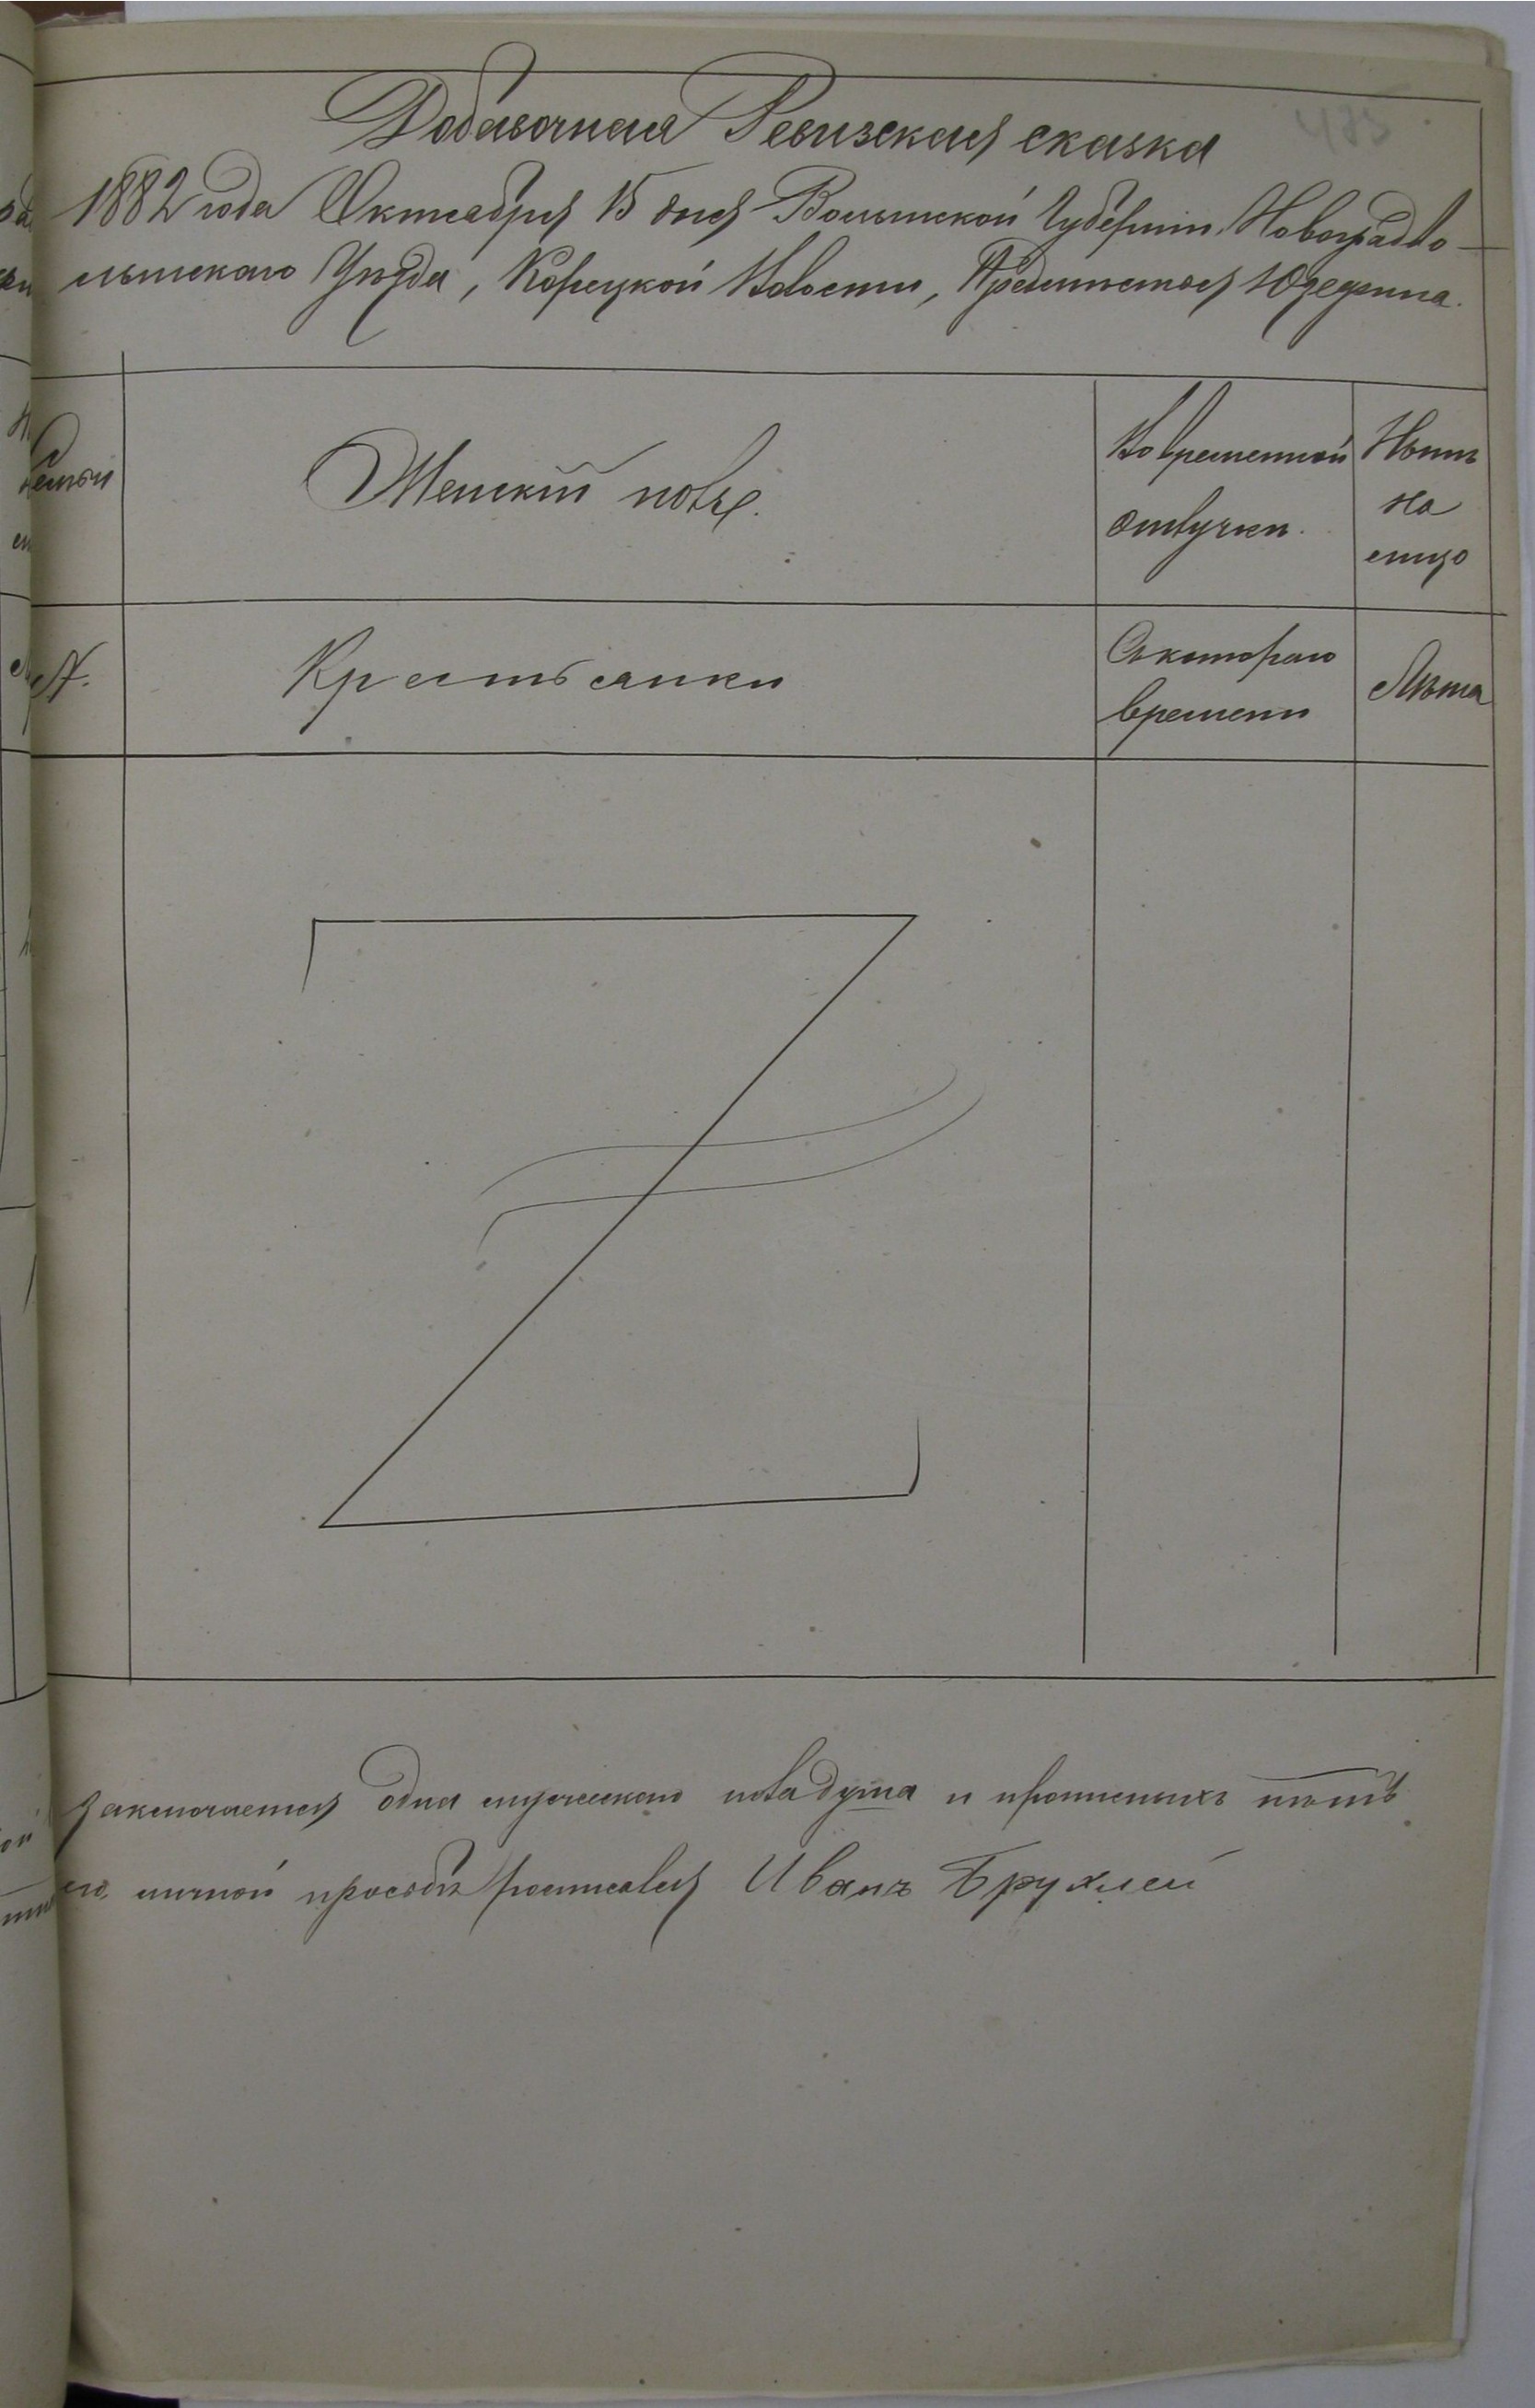 475
Добавочная Ревизская сказка
1882 года Октября 15 дня Волынской Губерніи, Новоградво-
лынскаго Уѣзда, Корецкой Волости, Предмѣстья Юзефина.
Семьи
Женскій полъ.
Во временной
отлучки.
Нынѣ
на
лицо
№.
Крестьянки
Съ котораго
времени
Лѣта
заключается одна мужескаго пола душа и прописныхъ нѣтъ
его личной просьбѣ росписался Иванъ Брухлей